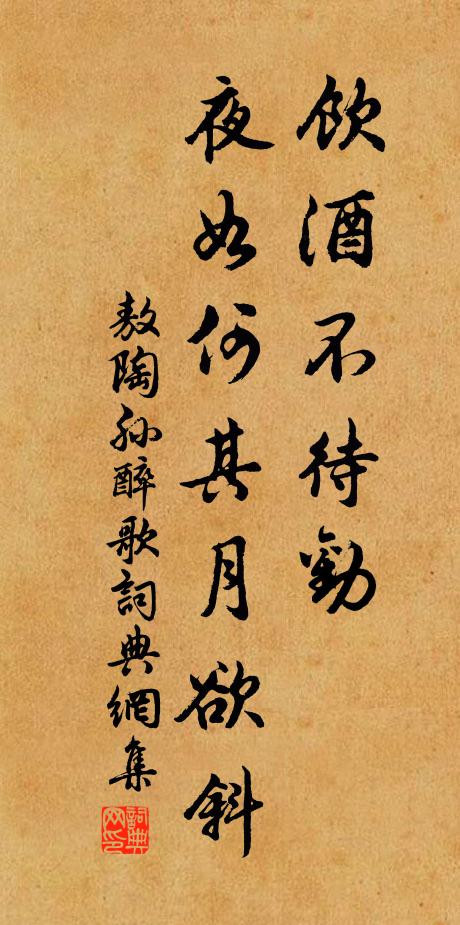 飲酒不待勸
夜如何其月欲斜
敖陶孫醉歌詞典網集
詞典網印